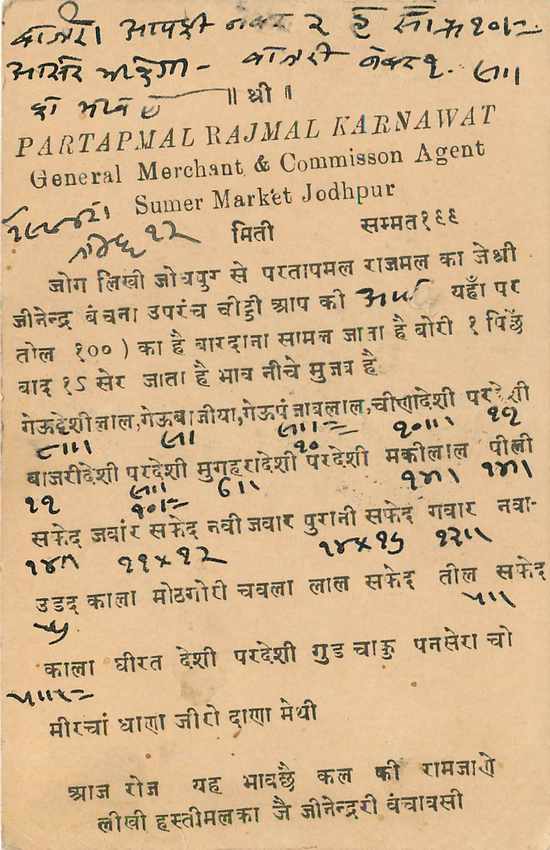 बाजरी आपकी नंबर २ है
बाजरी नंबर १
॥ श्री ॥
PARTAPMAL RAJMAL KARNAWAT
General Merchant & Commisson Agent
Sumer Market Jodhpur
मिती सम्मत१९९
जोग लिखी जोधपुर से परतापमल राजमल का जेश्री
जीनेन्द्र बंचना उपरंच चीट्ठी आप की यहाँ पर
तोल १००) का है बारदाना सामन जाता है बोरी १ पिछै
बाद १ऽ सेर जाता है भाव नीचे मुजब है
गेऊदेशीलाल,गेऊबाजीया,गेऊपंजाबलाल,चीणादेशी परदेशी
बाजरीदेशी परदेशी मुगहरादेशी परदेशी मकीलाल पीली
११
सफेद जवांर सफेद नवी जवार पुरानी सफेद गवार नवा-
११x१२ १४x१५
उडद काला मोठगोरी चवला लाल सफेद तील सफेद
काला घीरत देशी परदेशी गुड चाकु पनसेरा चो
मीरचां धाणा जीरो दाणा मेथी
आज रोज यह भावछै कल की रामजाणे
लीखी हस्तीमलका जै जीनेन्द्ररी वंचावसी